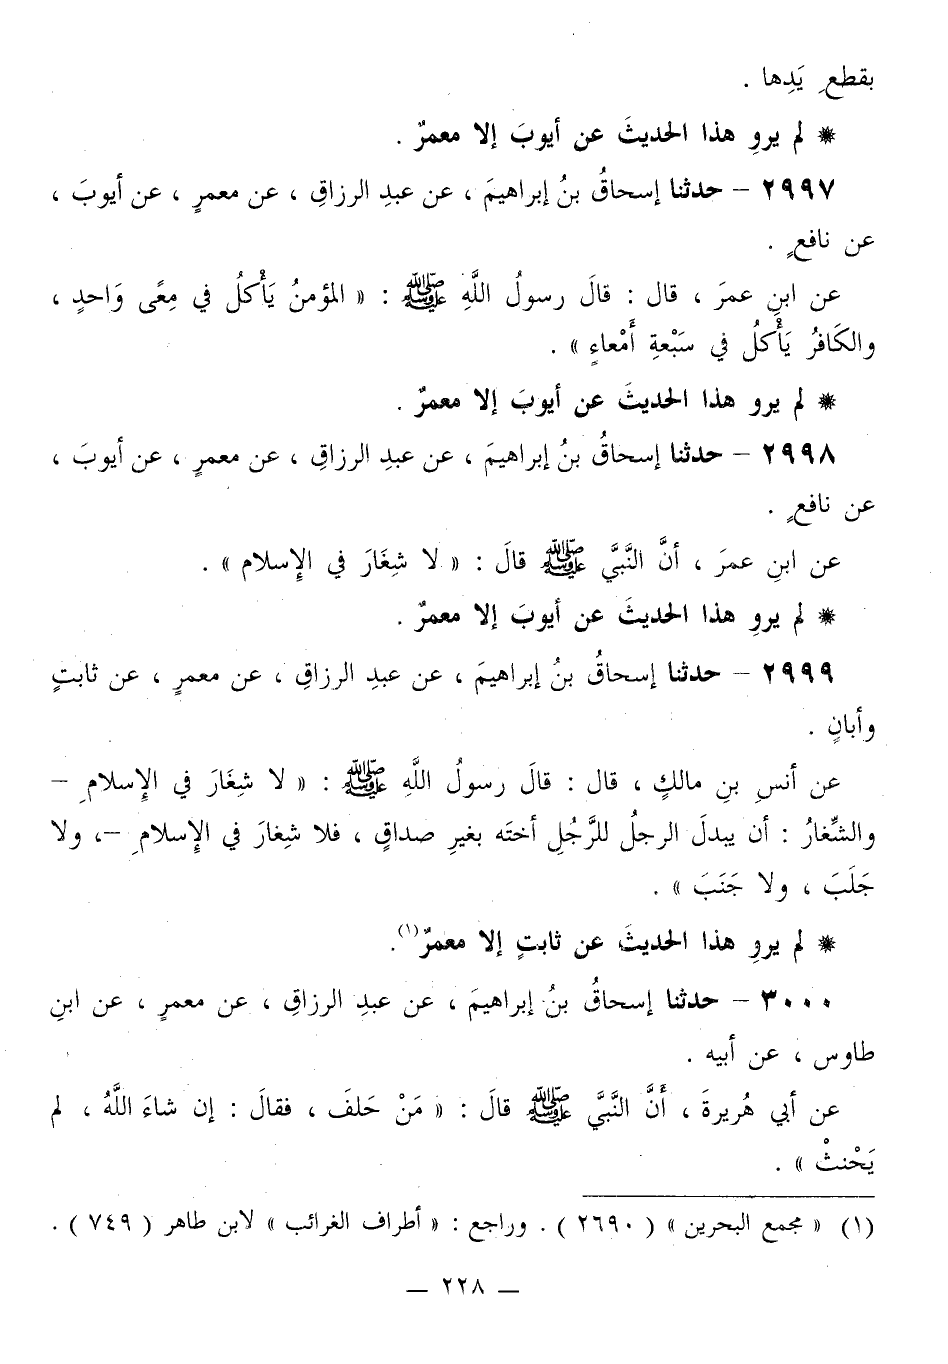 بقطعِ يَدِها .
* لم يروِ هذا الحديثَ عن أيوبَ إلا معمرٌ .
٢٩٩٧ – حدثنا إسحاقُ بنُ إبراهيمَ ، عن عبدِ الرزاقِ ، عن معمرٍ ، عن أيوبَ ،
عن نافعٍ .
عن ابنِ عمرَ ، قال : قالَ رسولُ اللَّهِ ﷺ : « المؤمنُ يَأْكلُ في مِعًى وَاحدٍ ،
والكَافرُ يَأْكلُ في سَبْعةِ أَمْعاءٍ » .
* لم يروِ هذا الحديثَ عن أيوبَ إلا معمرٌ .
٢٩٩٨ – حدثنا إسحاقُ بنُ إبراهيمَ ، عن عبدِ الرزاقِ ، عن معمرٍ ، عن أيوبَ ،
عن نافعٍ .
عن ابنِ عمرَ ، أنَّ النَّبيَّ ﷺ قالَ : « لا شِغَارَ في الإِسلام » .
* لم يروِ هذا الحديثَ عن أيوبَ إلا معمرٌ .
٢٩٩٩ – حدثنا إسحاقُ بنُ إبراهيمَ ، عن عبدِ الرزاقِ ، عن معمرٍ ، عن ثابتٍ
وأبانٍ .
عن أنسِ بنِ مالكٍ ، قال : قالَ رسولُ اللَّهِ ﷺ : « لا شِغَارَ في الإِسلامِ –
والشِّغارُ : أن يبدلَ الرجلُ للرَّجُلِ أختَه بغيرِ صداقٍ ، فلا شِغارَ في الإِسلامِ –، ولا
جَلَبَ ، ولا جَنَبَ » .
* لم يروِ هذا الحديثَ عن ثابتٍ إلا معمرٌ(١).
٣٠٠٠ – حدثنا إسحاقُ بنُ إبراهيمَ ، عن عبدِ الرزاقِ ، عن معمرٍ ، عن ابنِ
طاوس ، عن أبيه .
عن أبي هُريرةَ ، أَنَّ النَّبيَّ ﷺ قالَ : « مَنْ حَلفَ ، فقالَ : إن شاءَ اللَّهُ ، لم
يَحْنثْ » .
(١) « مجمع البحرين » ( ٢٦٩٠ ) . وراجع : « أطراف الغرائب » لابن طاهر ( ٧٤٩ ) .
— ٢٢٨ —